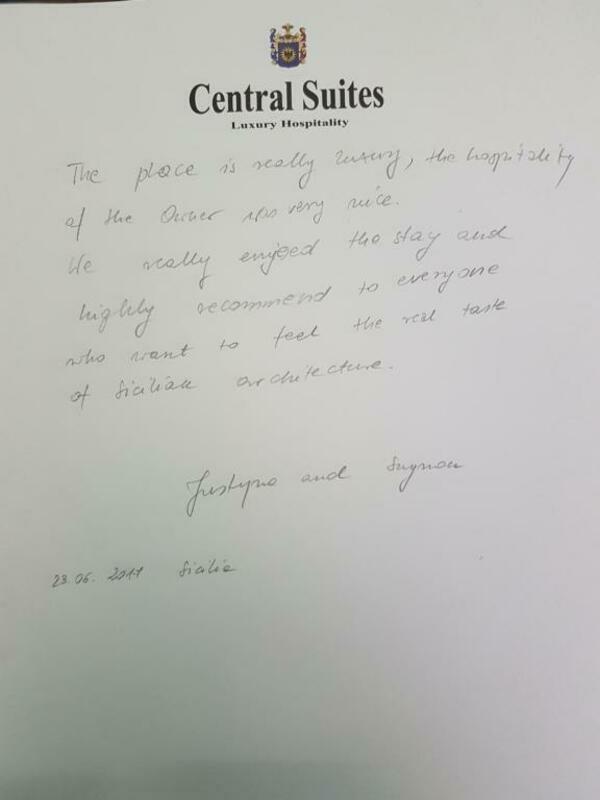 Central Suites
Luxury Hospitality
The place is really luxury, the hospitality
of the Owner was very nice.
We really enjoed the stay and
highly recommend to everyone
who want to feel the real taste
of Sicilian architecture.
Justyna and
23.06.2017 Sicilia